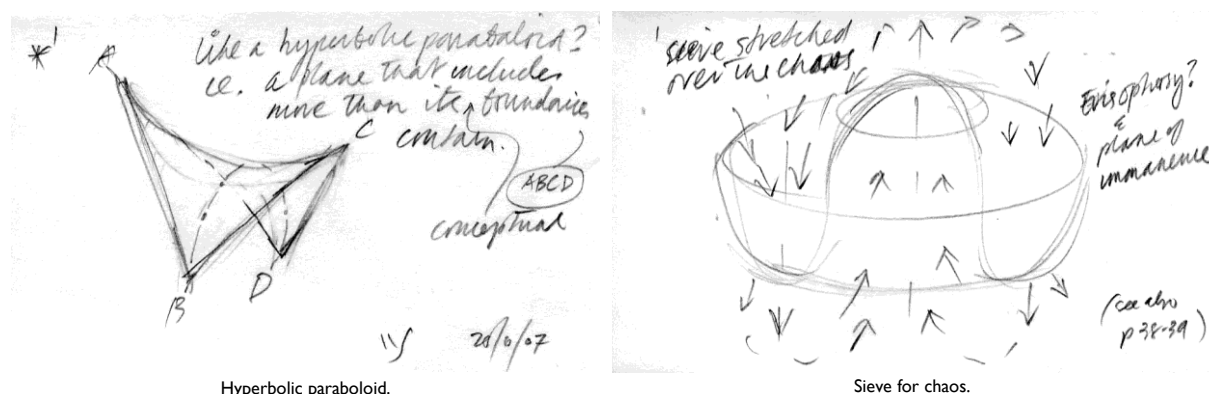 *'
A
like a hyperbolic parabaloid?
ie. a plane that includes
more than its boundaries
contain.
C
ABCD
conceptual
B
D
Hyperbolic paraboloid.
'sieve stretched
over the chaos'
&
plane of
immanence
(see also
p 38-39)
Sieve for chaos.